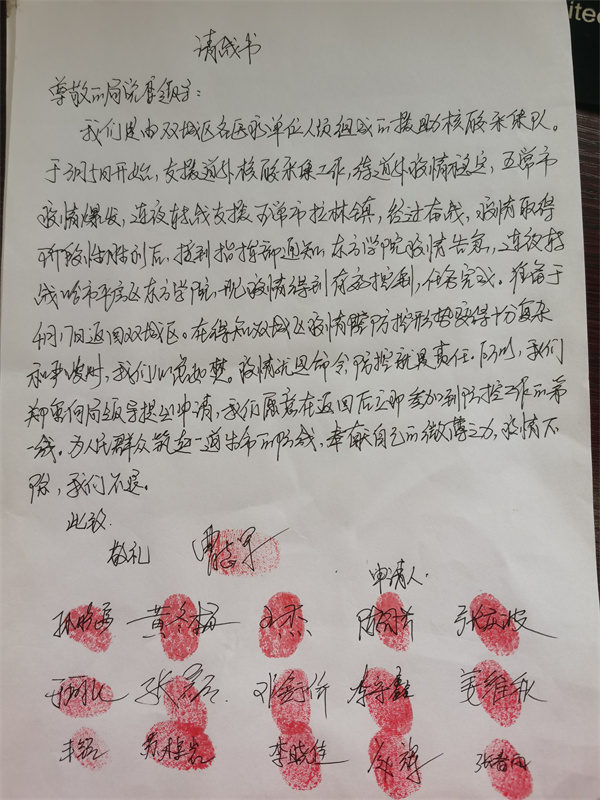 itec
请战书
尊敬的局党委领导：
我们是由双城区各医疗单位人员组成的援助核酸采集队。
于3月5日开始，支援道外核酸采集工作，待道外疫情稳定，五常市
疫情爆发，连夜转战支援五常市拉林镇，经过奋战，疫情取得
阶段性胜利后，接到指挥部通知东方学院疫情告急，连夜转
战哈市平房区东方学院，现疫情得到有效控制，任务完成。准备于
4月17日返回双城区。在得知双城区疫情防控形势变得十分复杂
和严峻时，我们心急如焚。疫情就是命令，防控就是责任。所以，我们
郑重向局领导提出申请，我们愿意在返回后立即参加到防控工作的第
一线。为人民群众筑起一道生命的防线，奉献自己的微薄之力，疫情不
除，我们不退。
此致
敬礼
申请人：
孙晓燕 黄冬梅 王杰 张立波
张磊 邓舒 李宇鑫 姜维秋
李晓佳 张春雨